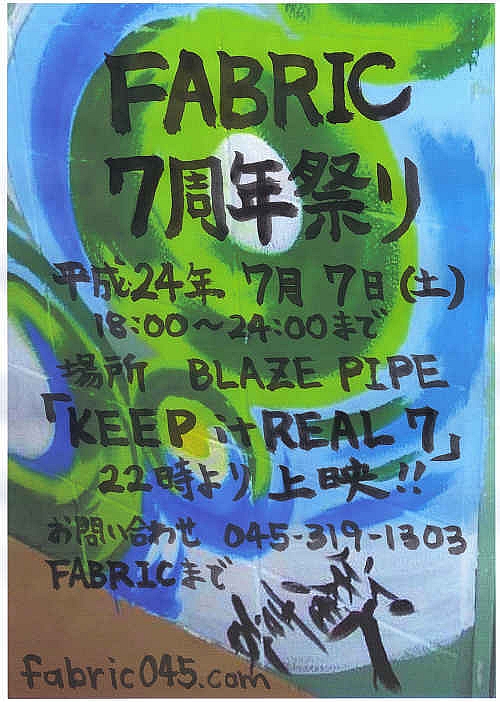 FABRIC
7周年祭り
平成24年 7月7日(土)
18:00～24:00まで
場所 BLAZE PIPE
「KEEP it REAL 7」
22時より 上映!!
お問い合わせ 045-319-1303
FABRICまで
fabric045.com